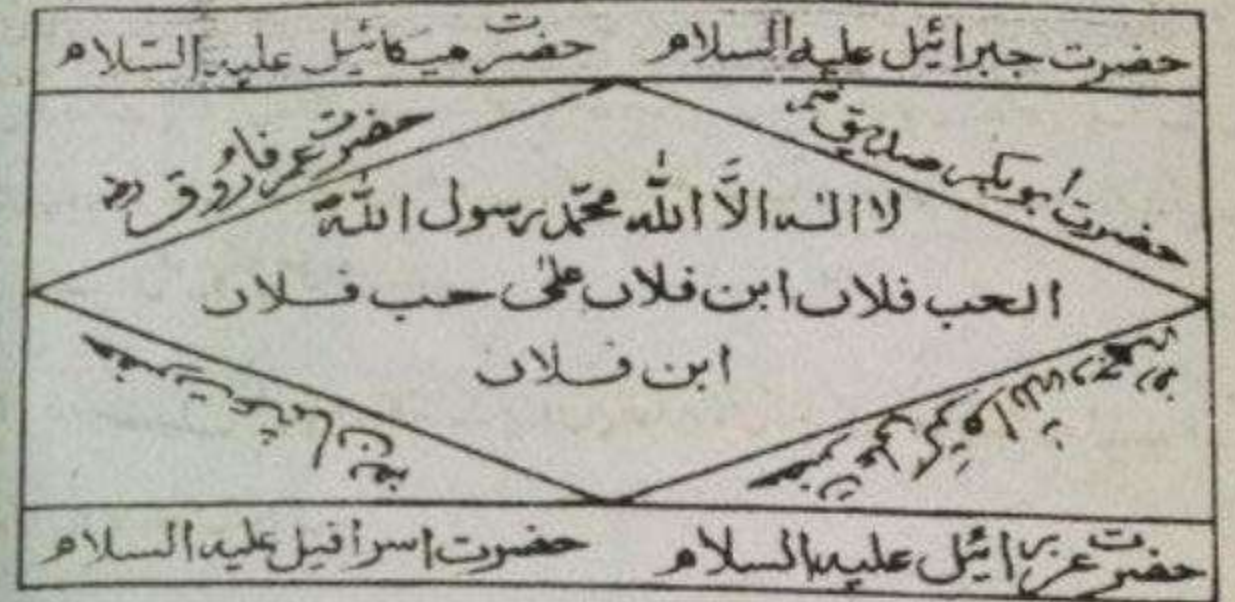 حضرت جبرائیل علیہ السلام
حضرت میکائیل علیہ السّلام
حضرت ابوبکر صدیق رضہ
حضرت عمر فاروق رضہ
لا الٰہ الاَّ اللّٰه محمّد رسول اللّٰه
الحب فلاں ابن فلاں علیٰ حب فلاں
ابن فلاں
حضرت
حضرت
حضرت عزرائیل علیہ السلام
حضرت اسرافیل علیہ السلام